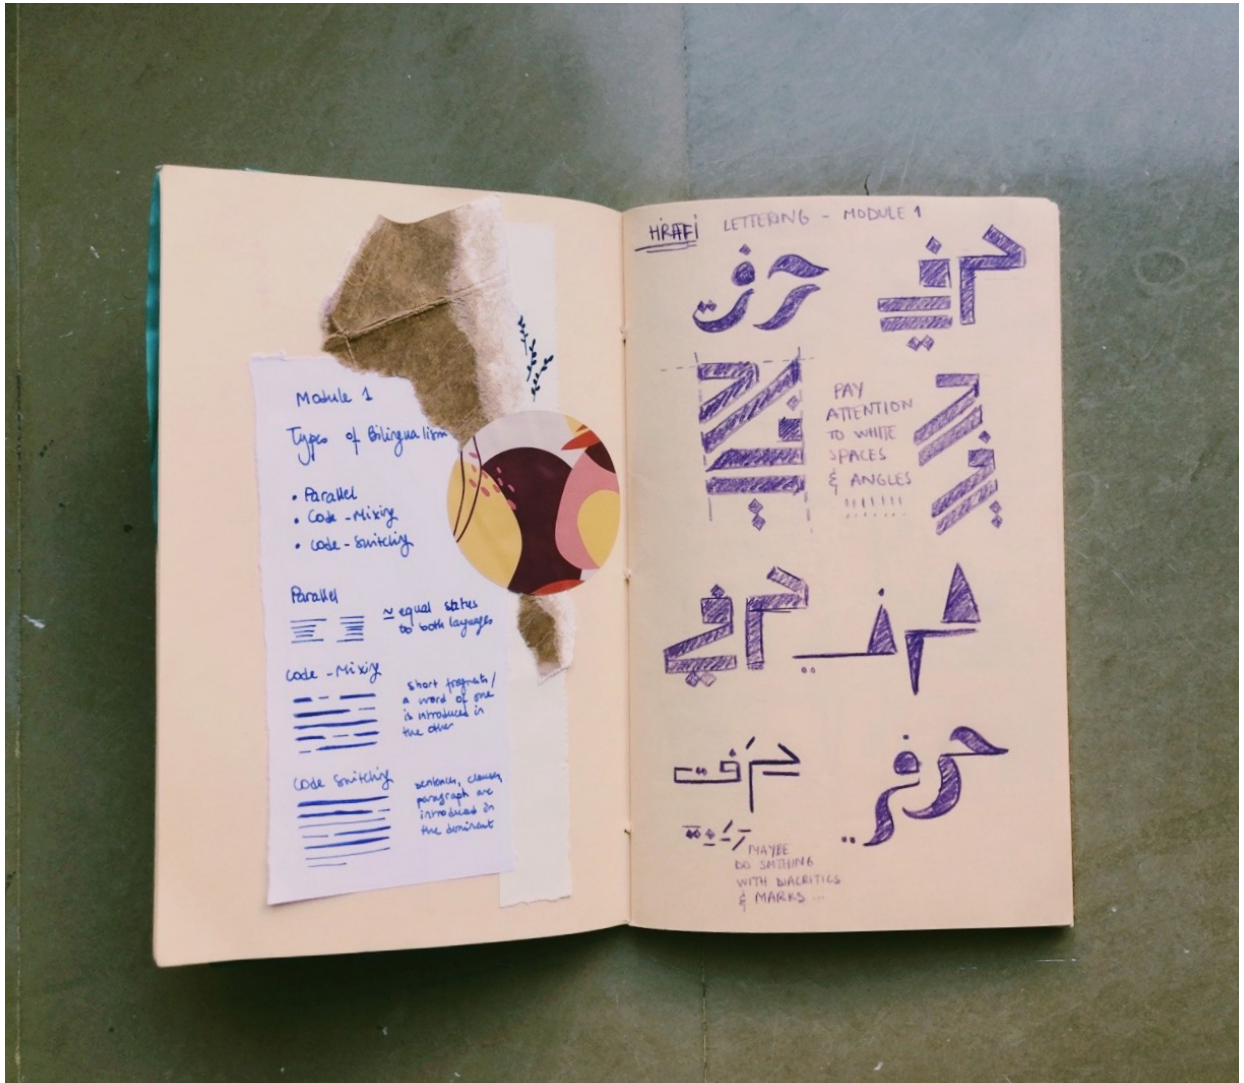 Module 1
Types of Bilingualism
• Parallel
• Code-Mixing
• Code-Switching
Parallel
≃ equal status
to both languages
Code-Mixing
short fragments/
a word of one
is introduced in
the other
Code Switching
sentences, clauses,
paragraph are
introduced in
the dominent
HIRAFI LETTERING - MODULE 1
حرفي
حرفي
حرفي
PAY
ATTENTION
TO WHITE
SPACES
& ANGLES
حرفي
حرفي
حرفي
حرفي
حرفي
MAYBE
DO SMTHING
WITH DIACRITICS
& MARKS ...